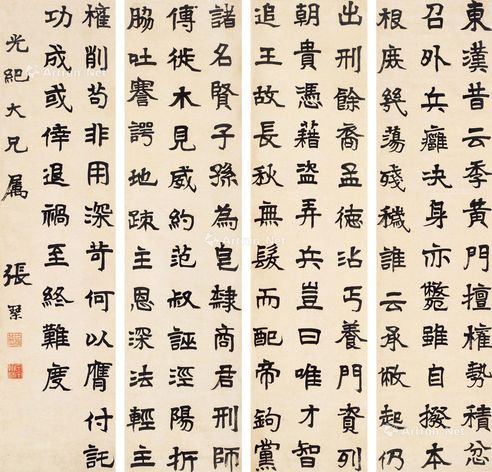 東漢昔云季黃門擅權勢積忿
召外兵癰決身亦斃雖自撥本
根厎幾蕩殘穢誰云承敝起仍
出刑餘裔孟德沾丐養門資列
朝貴憑藉盜弄兵豈曰唯才智
追王故長秋無髮而配帝鉤黨
諸名賢子孫為皂隸商君刑師
傅徙木見威約范叔誣涇陽折
脇吐謇諤地疎主恩深法輕主
權削苟非用深苛何以膺付託
功成或倖退禍至終難度
光紀大兄屬 張
Artron.Net